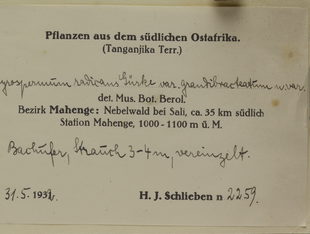 Pflanzen aus dem südlichen Ostafrika.
(Tanganjika Terr.)
yrospermum radicans Gürke var. grandibracteatum n. var.
det. Mus. Bot. Berol.
Bezirk Mahenge: Nebelwald bei Sali, ca. 35 km südlich
Station Mahenge, 1000-1100 m ü. M.
Bachufer, Strauch 3-4 m, vereinzelt.
31.5.1932. H. J. Schlieben n 2259.